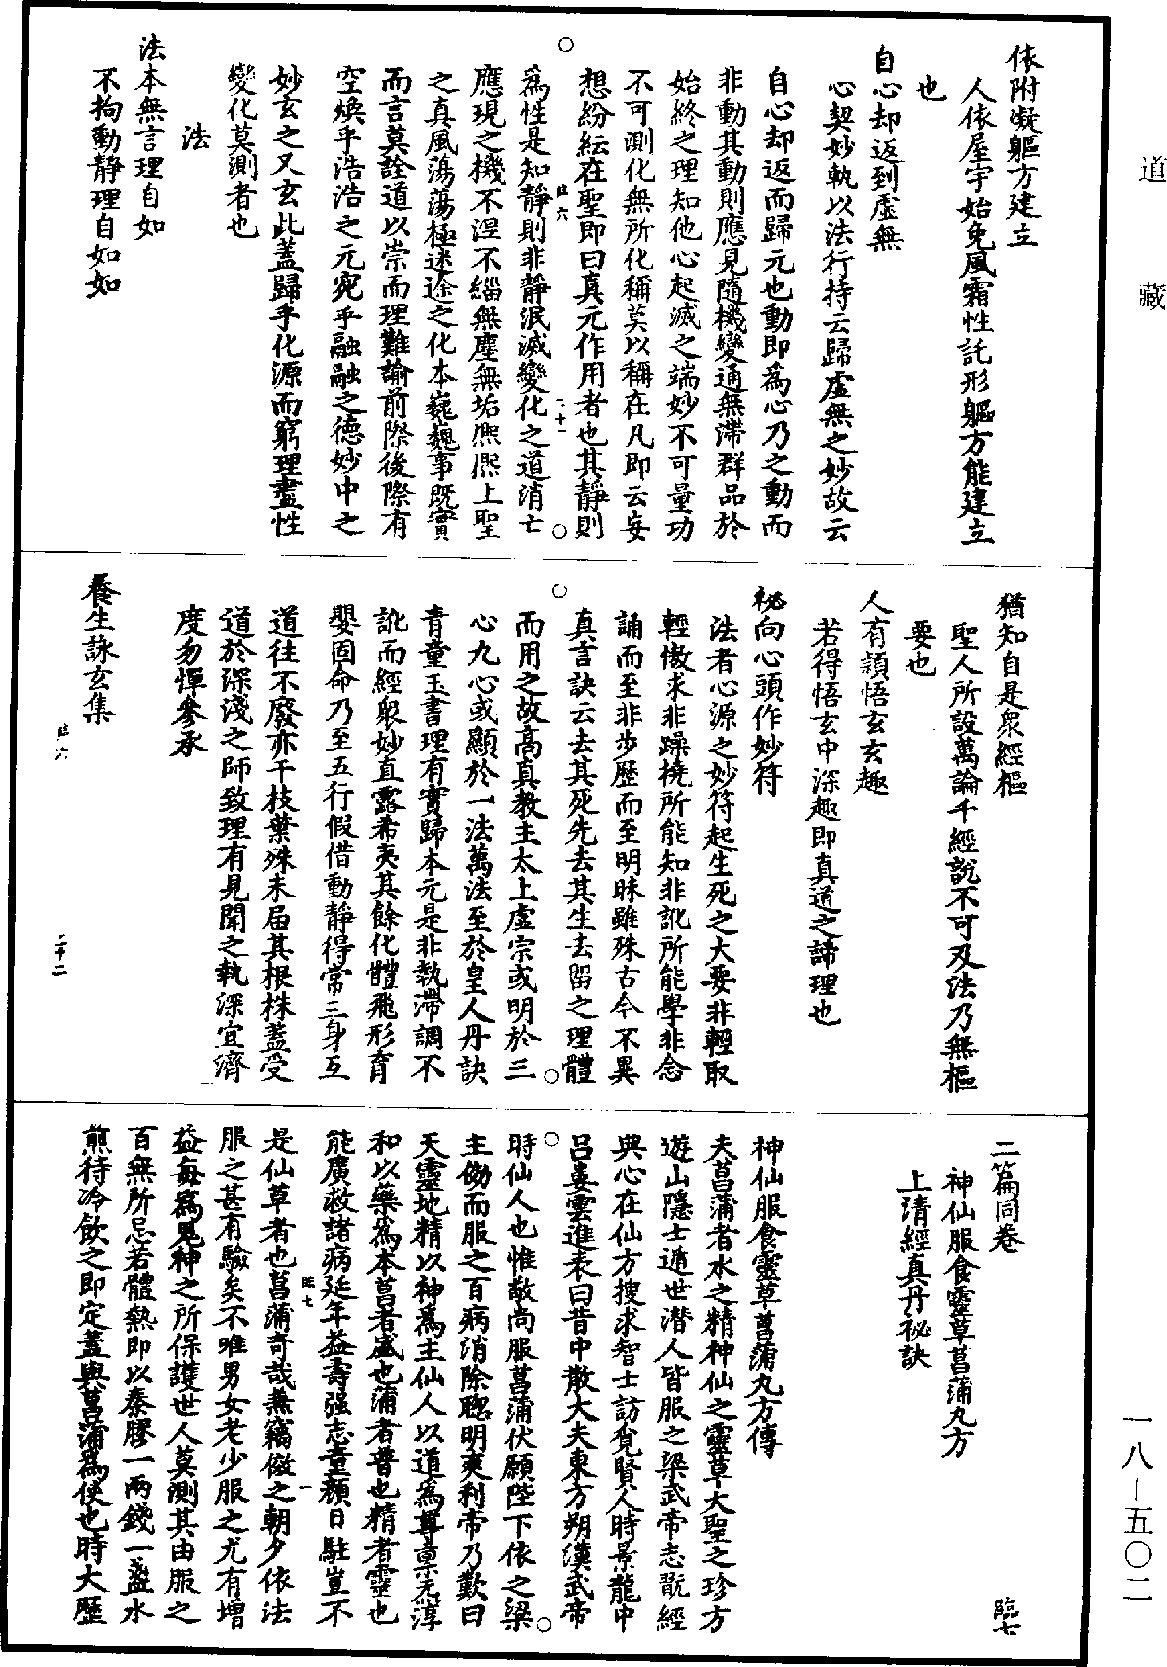 道藏
依附凝軀方建立
人依屋宇始免風霜性託形軀方能建立
也
自心却返到虛無
心契妙執以法行持云歸虛無之妙故云
自心却返而歸元也動即為心乃之動而
非動其動則應見隨機變通無滯群品於
始終之理知他心起滅之端妙不可量功
不可測化無所化稱莫以稱在凡即云妄
想紛紜在聖即曰真元作用者也其靜則
為性是知靜則非靜泯滅變化之道消亡
應現之機不涅不緇無塵無垢熙熙上聖
之真風蕩蕩極迷途之化本巍巍事既實
而言莫詮道以崇而理難諭前際後際有
空煥乎浩浩之元宛乎融融之德妙中之
妙玄之又玄此蓋歸乎化源而窮理盡性
變化莫測者也
法
法本無言理自如
不拘動靜理自如如
猶知自是衆經樞
聖人所設萬論千經說不可及法乃無樞
要也
人有頴悟玄玄趣
若得悟玄中深趣即真道之諦理也
祕向心頭作妙符
法者心源之妙符起生死之大要非輕取
輕傲求非躁橈所能知非訛所能學非念
誦而至非步歷而至明昧雖殊古今不異
真言訣云去其死先去其生去留之理體
而用之故高真教主太上虛宗或明於三
心九心或顯於一法萬法至於皇人丹訣
青童玉書理有實歸本元是非執滯調不
訛而經衆妙直露希夷其餘化體飛形育
嬰固命乃至五行假借動靜得常三身互
道往不廢亦千枝葉殊未届其根株蓋受
道於深淺之師致理有見聞之執深宜濟
度勿憚參承
養生詠玄集
臨六
二十二
二篇同卷
臨七
神仙服食靈草菖蒲丸方
上清經真丹祕訣
神仙服食靈草菖蒲丸方傳
夫菖蒲者水之精神仙之靈草大聖之珍方
遊山隱士遁世潛人皆服之梁武帝志翫經
典心在仙方搜求智士訪覓賢人時景龍中
呂婁雲進表曰昔中散大夫東方朔漢武帝
時仙人也惟敬尚服菖蒲伏願陛下依之梁
主勑而服之百病消除聰明爽利帝乃歎曰
天靈地精以神為主仙人以道為尊稟无淳
和以藥為本菖者盛也蒲者普也精者靈也
能廣救諸病延年益壽强志童顏日駐豈不
是仙草者也菖蒲奇哉無竊倣之朝夕依法
服之甚有驗矣不唯男女老少服之尤有增
益每為鬼神之所保護世人莫測其由服之
百無所忌若體熱即以秦膠一兩錢一盞水
煎待冷飲之即定蓋與菖蒲為使也時大歷
一八－五〇二